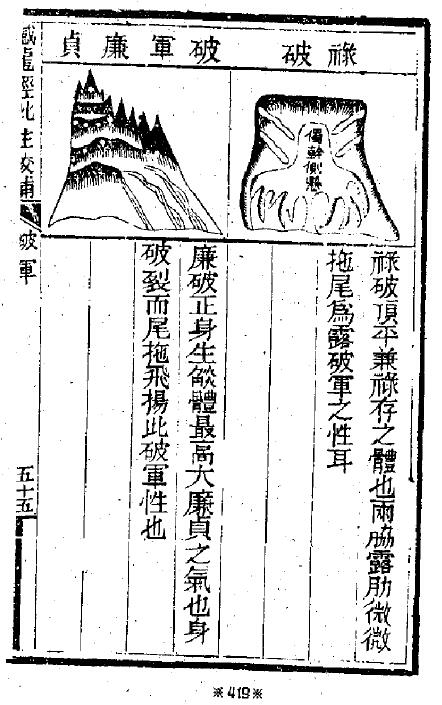 祿破
破軍廉貞
祿破頂平兼祿存之體也兩脇露肋微微
拖尾爲露破軍之性耳
廉破正身生燄體最高大廉貞之氣也身
破裂而尾拖飛揚此破軍性也
撼龍經批注校補
破軍
五十五